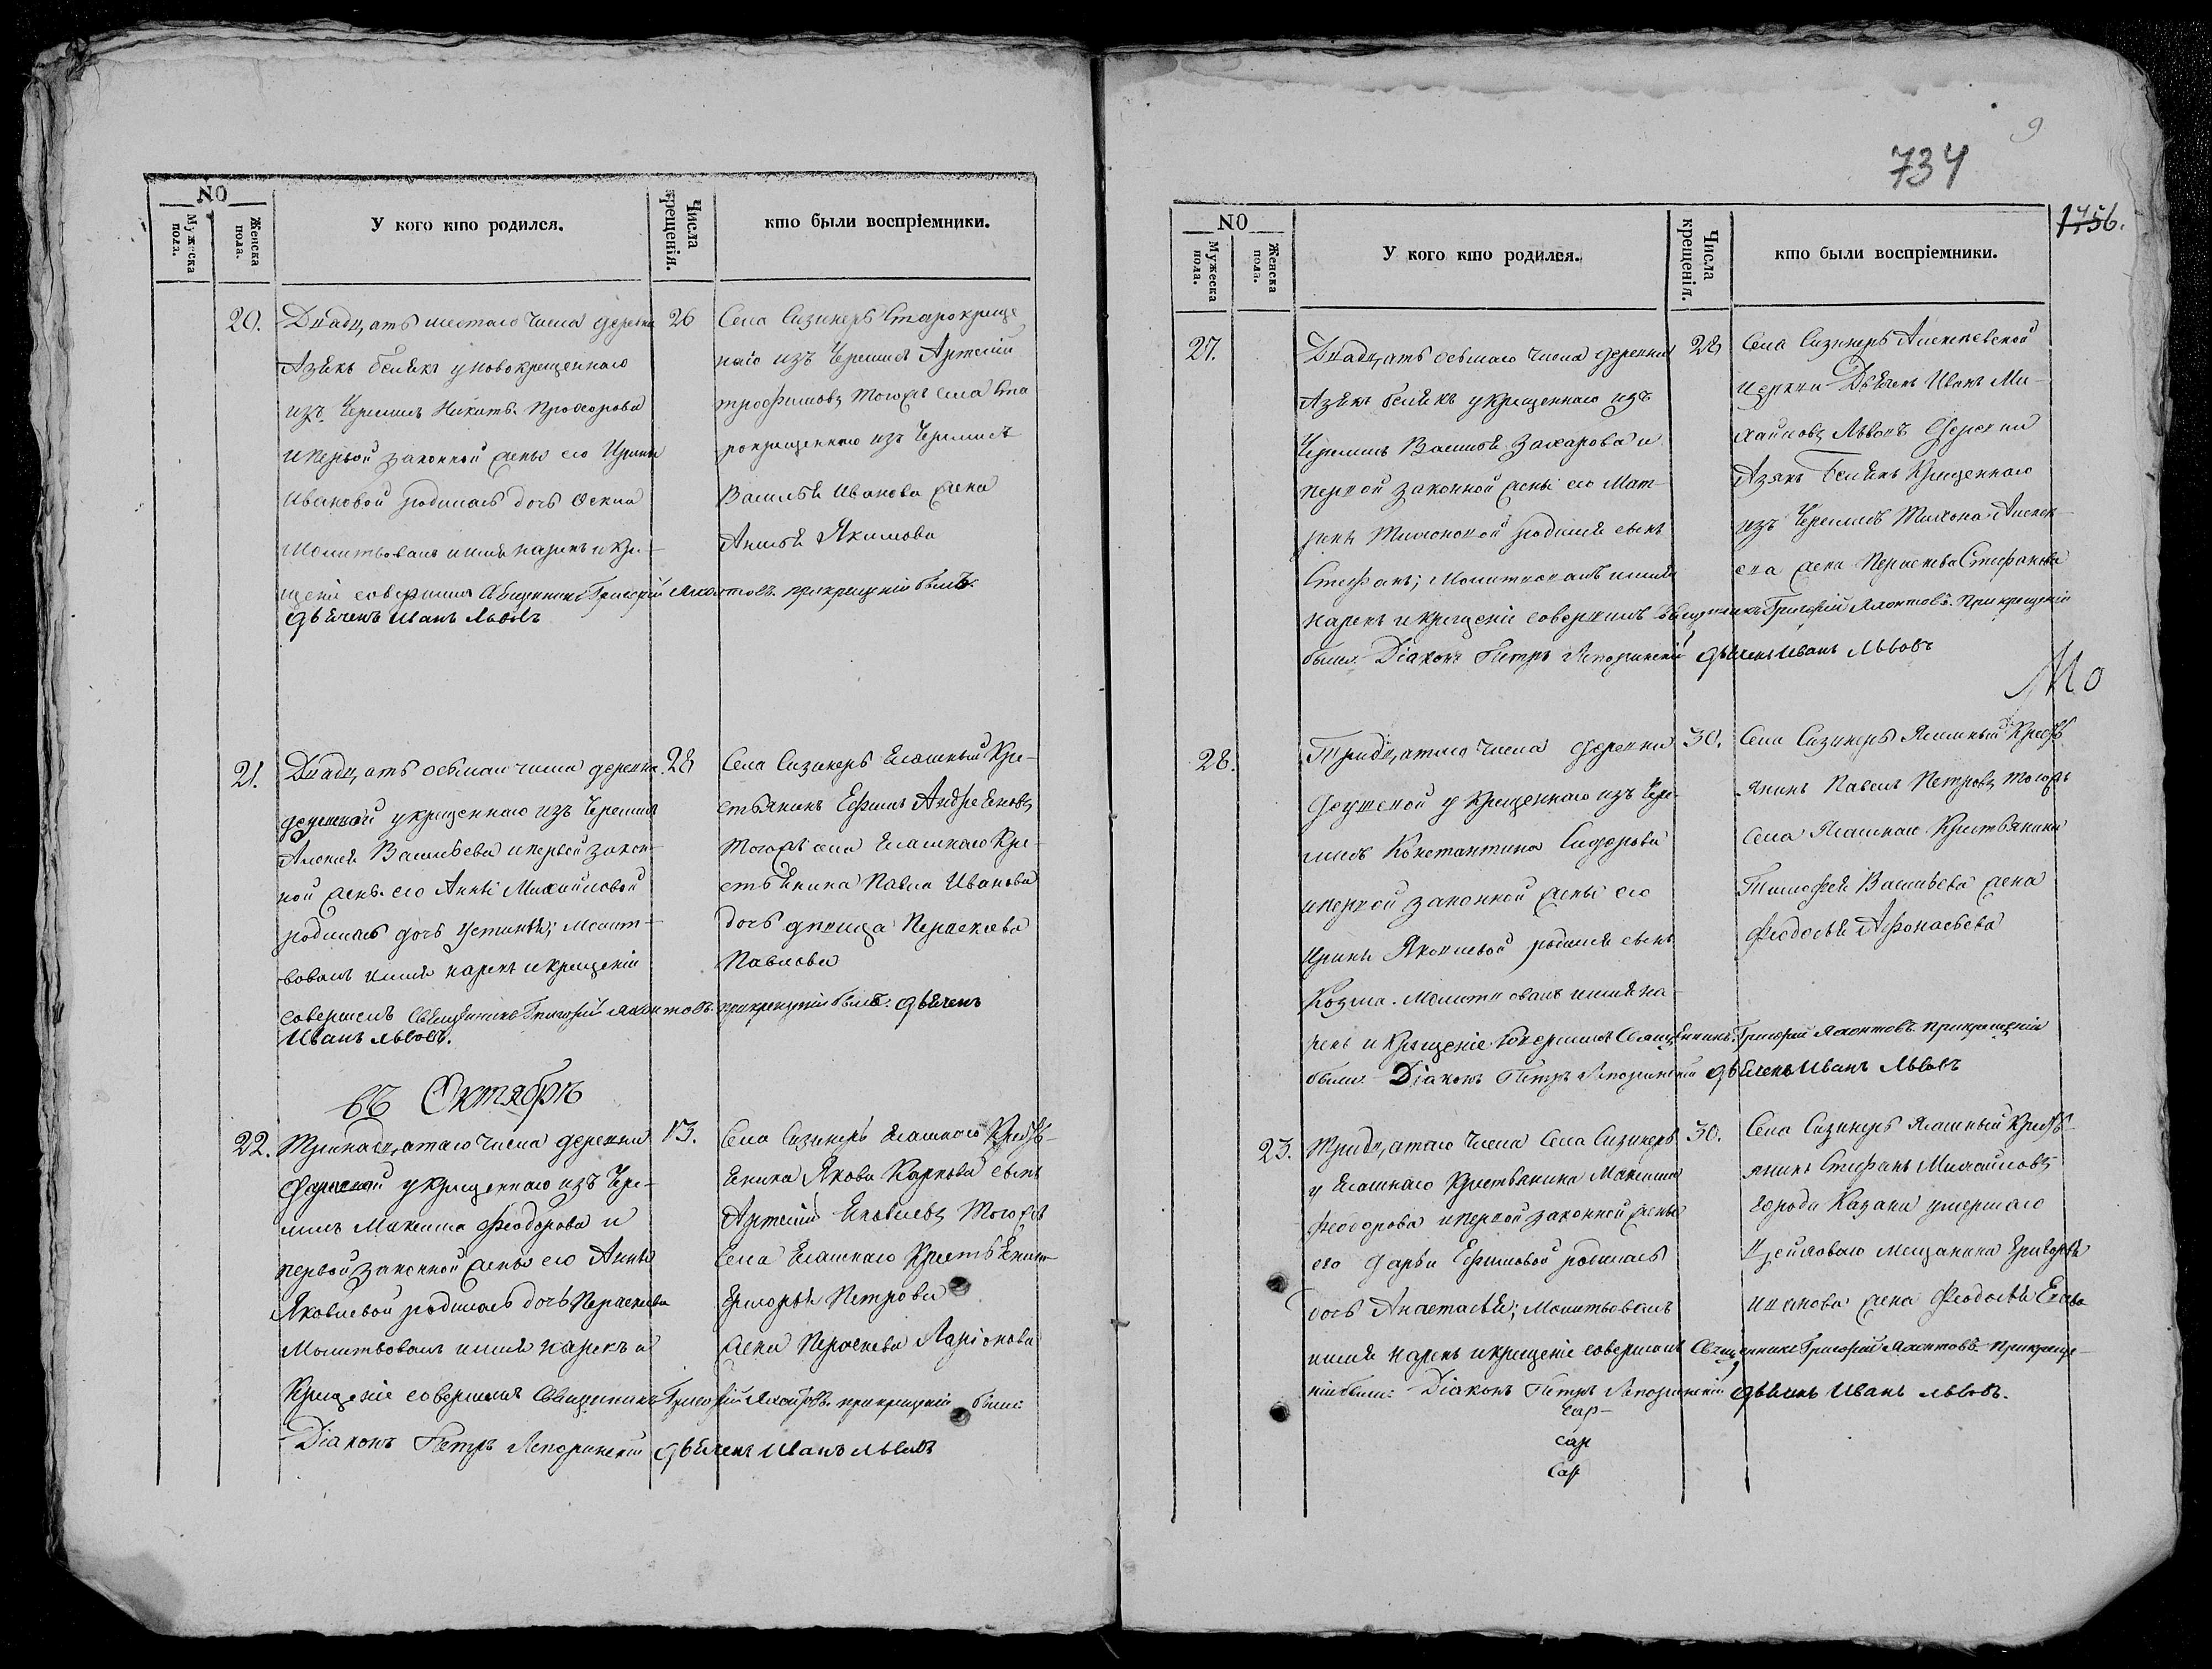 NO
Мужеска пола.
Женска пола.
У кого кто родился.
Числа крещенія.
кто были воспріемники.
20.
Двадцать шестаго числа деревни
Азякъ Белякъ у новокрещеннаго
изъ Черемисъ Никиты Прохорова
и первой законной жены его Ирины
Ивановой родилась дочь Фекла
Молитвовалъ имя нарекъ и кре-
щеніе совершилъ Священникъ Григорій Яхонтовъ. при крещеніи былъ.
дьячекъ Иванъ Львовъ
26
Села Сизинеръ Старокреще
наго изъ Черемисъ Артемій
Трофимовъ тогожъ села Ста
рокрещеннаго изъ Черемисъ
Василья Иванова жена
Анисья Якимова
21.
Двадцать осьмаго числа деревни
у крещеннаго изъ Черемисъ
Алексея Васильева и первой закон-
ной жены его Анны Михайловой
родилась дочь Устинья; Молит-
вовалъ имя нарекъ и крещеніе
совершилъ Священникъ Григорій Яхонтовъ. при крещеніи былъ. дьячекъ
Иванъ Львовъ.
28
Села Сизинеръ Ясашный Кре-
стьянинъ Ефимъ Андреяновъ
Тогожъ села Ясашнаго Кре-
стьянина Павла Иванова
дочь девица Параскева
Павлова
въ Октябрѣ
22.
Тринадцатаго числа деревни
у крещеннаго изъ Чере-
мисъ Максима Феодорова и
первой законной жены его Анны
Яковлевой родилась дочь Параскева
Молитвовалъ имя нарекъ и
Крещеніе совершилъ Священникъ Григорій Яхонтовъ. при крещеніи были:
Діаконъ Петръ Лепоринскій дьячекъ Иванъ Львовъ
13.
Села Сизинеръ Ясашнаго Крестья-
янина Якова Карпова сынъ
Артемій Яковлевъ Тогожъ
Села Ясашнаго Крестьянина
Григорья Петрова
жена Параскева Ларіонова
9
734
1756.
NO
Мужеска пола.
Женска пола.
У кого кто родился.
Числа крещенія.
кто были воспріемники.
27.
Двадцать осьмаго числа деревни
Азякъ Белякъ у крещеннаго изъ
Черемисъ Василья Захарова и
первой законной жены его Мат-
рены Тихоновой родился сынъ
Стефанъ; Молитвовалъ имя
нарекъ и крещеніе совершилъ Священникъ Григорій Яхонтовъ. При крещеніи
были. Діаконъ Петръ Лепоринскій дьячекъ Иванъ Львовъ
28
Села Сизинеръ Алексеевской
церкви Дьячекъ Иванъ Ми-
хайловъ Львовъ деревни
Азякъ Белякъ Крещеннаго
изъ Черемисъ Тихона Алекс-
ева жена Параскева Стефанова
Мо
28.
Тридцатаго числа деревни
у Крещеннаго изъ Чере-
мисъ Константина Сидорова
и первой законной жены его
Ирины Яковлевой родился сынъ
Козма. Молитвовалъ имя на-
рекъ и Крещеніе Совершилъ Священникъ Григорій Яхонтовъ. при крещеніи
были. Діаконъ Петръ Лепоринскій дьячекъ Иванъ Львовъ
30.
Села Сизинеръ Ясашный Кресть
янинъ Павелъ Петровъ тогожъ
села Ясашнаго Крестьянина
Тимофея Васильева жена
Феодосья Афонасьева
23.
Тридцатаго числа Села Сизинеръ
у Ясашнаго Крестьянина Максима
Феодорова и первой законной жены
его Дарьи Ефимовой родилась
дочь Анастасья; Молитвовалъ
имя нарекъ и крещеніе совершилъ Священникъ Григорій Яхонтовъ. При креще-
ніи были: Діаконъ Петръ Лепоринскій дьячекъ Иванъ Львовъ.
30.
Села Сизинеръ Ясашный Кресть-
янинъ Стефанъ Михайловъ
города Казани умершаго
Цеховаго мещанина Григорья
Иванова жена Феодосья
Сар-
сар
Сар